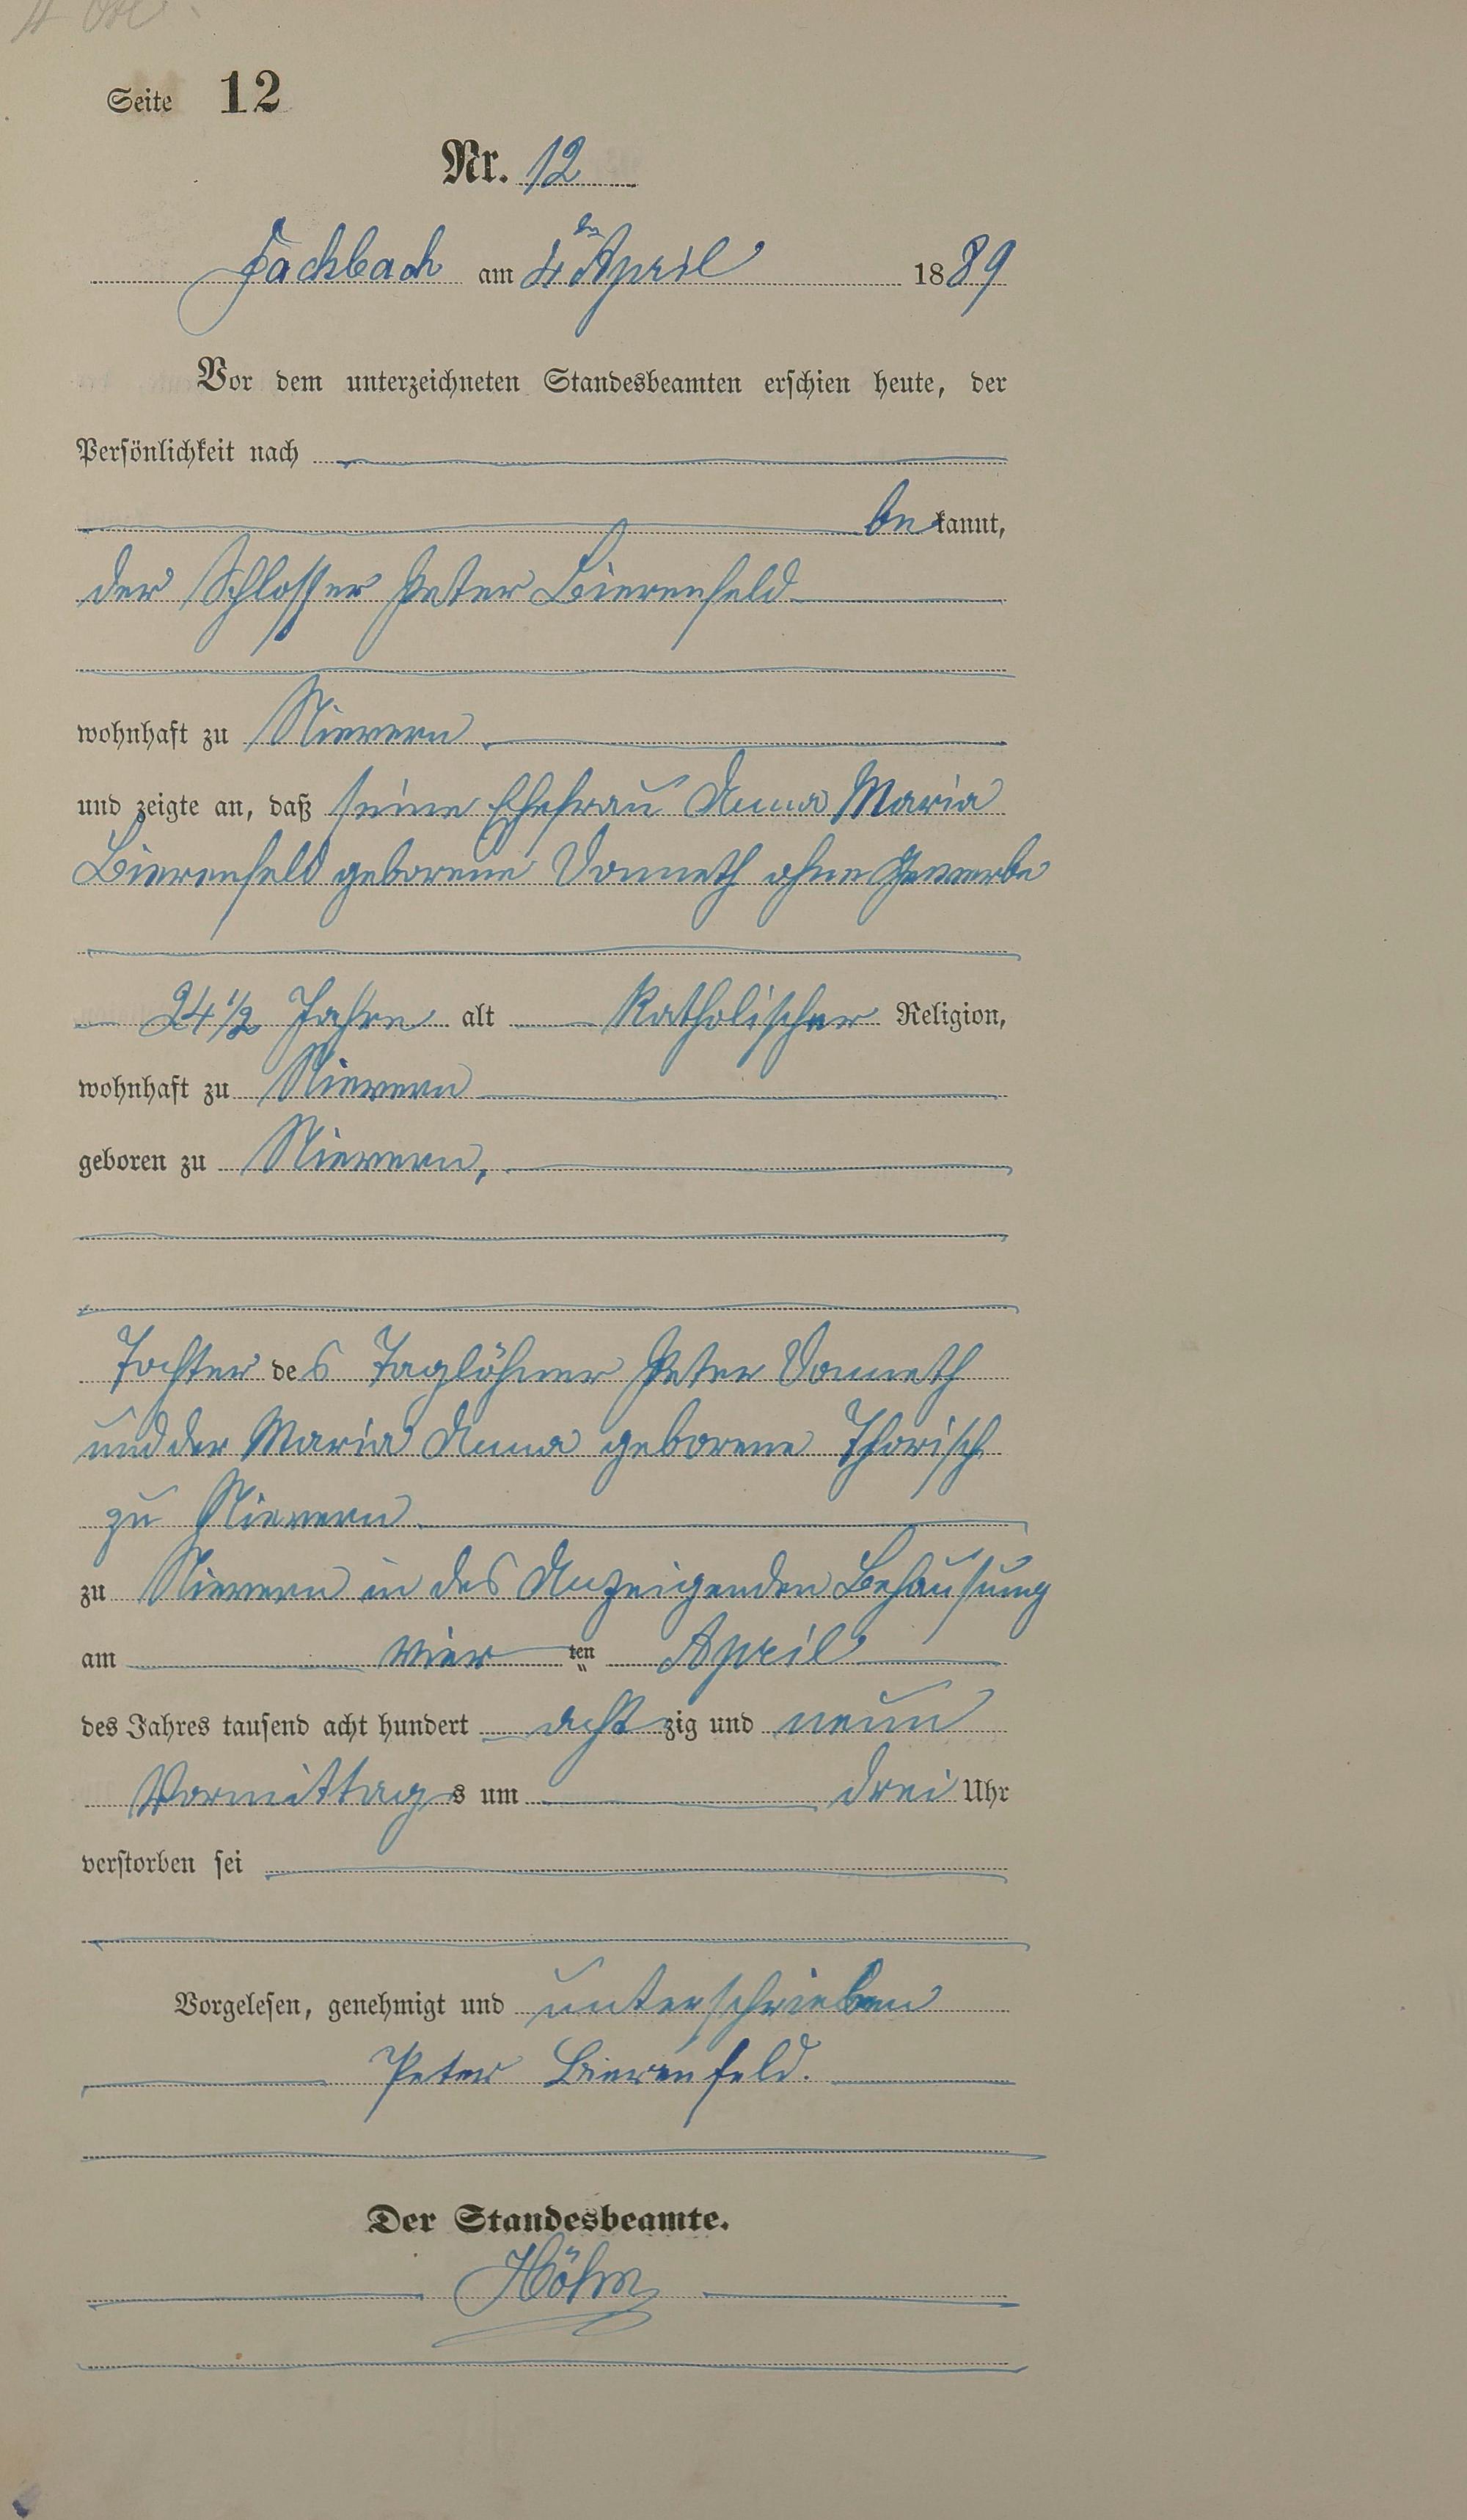 Seite 12
Nr. 12
Fachbach am 4ten April 1889
Vor dem unterzeichneten Standesbeamten erschien heute, der
Persönlichkeit nach
bekannt,
der Schlosser Peter Bierenfeld
wohnhaft zu Nievern
und zeigte an, daß seine Ehefrau Anna Maria
Bierenfeld geborene Vometh ohne Gewerbe
24 1/2 Jahre alt katholischer Religion,
wohnhaft zu Nievern
geboren zu Nievern,
Tochter des Taglöhner Peter Vometh
und der Maria Anna geborene Thorisch
zu Nievern
zu Nievern in des Anzeigenden Behausung
am vierten April
des Jahres tausend acht hundert achtzig und neun
Vormittags um drei Uhr
verstorben sei
Vorgelesen, genehmigt und unterschrieben
Peter Bierenfeld.
Der Standesbeamte.
Höhn